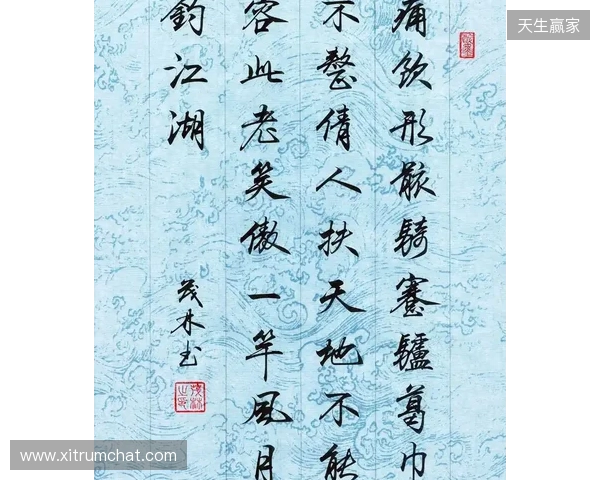 天生赢家
痛飲形骸騎蹇驢葛巾
不整倩人扶天地不能
容此老笑傲一竿風月
釣江湖
茂林书
www.xitrumchat.com